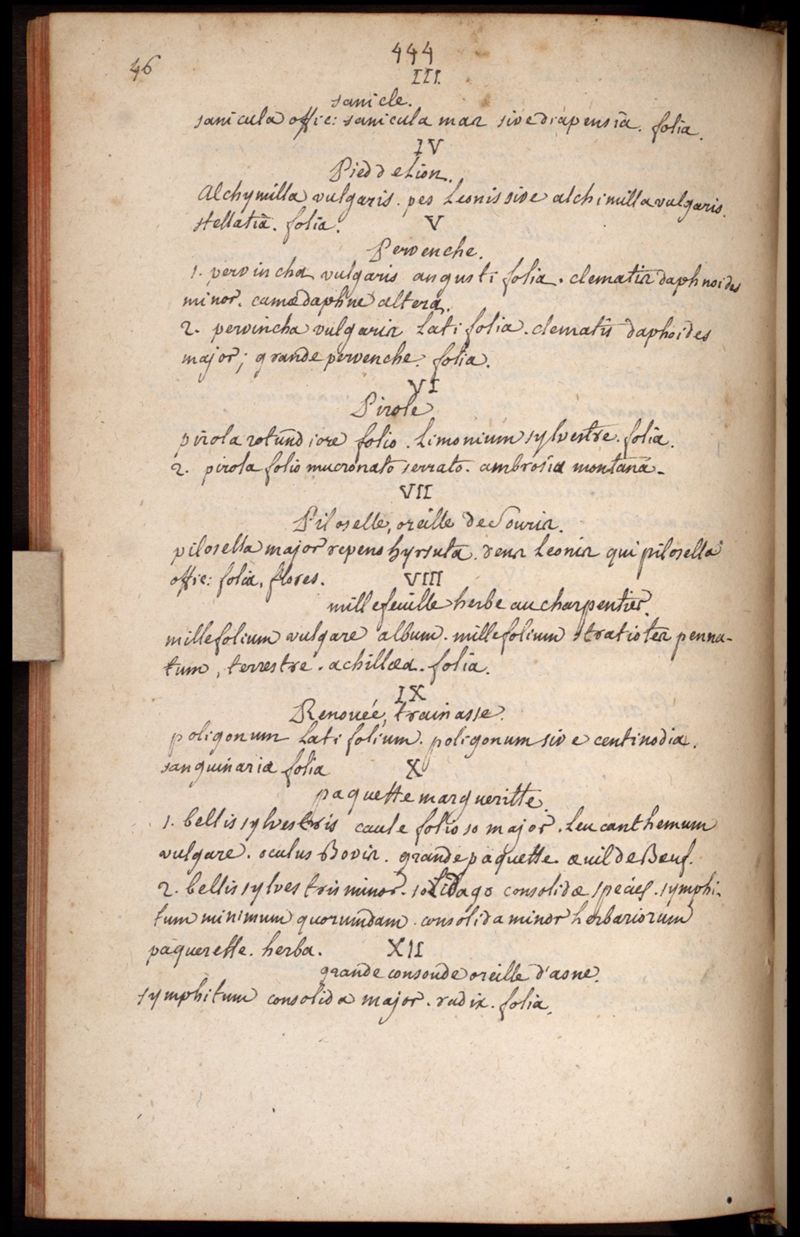 46
444
III.
sanicle.
sanicula offic: sanicula mas sive diapensia. folia.
IV
Pied de Lion.
Alchymilla vulgaris. pes Leonis sive alchimilla vulgaris.
stellatia. folia.
V
Pervenche.
1. pervincha vulgaris angusti folia. clematis daphnoides
minor. camædaphne altera.
2. pervincha vulgaris Lati folia. clematis daphoides
major; grande pervenche. folia.
VI
Pirole
pirola rotundiore folio. Limonium sylvestre. folia.
2. pirola folio mucronato serrato. ambrosia montana.
VII
Piloselle, oreille de Souris.
pilosella major repens hyrsuta. dens Leonis qui pilosella
offic: folia, flores.
VIII
millefeuille herbe au charpentier.
millefolium vulgare album. millefolium stratiotes penna-
tum, terrestre. achillæa. folia.
IX
Renouée, trainasse.
poligonum Lati folium. poligonum sive centinodia.
sanguinaria folia
X
paquette margueritte.
1. bellis sylvestris caule folioso major. Leucanthemum
vulgare. oculus Bovis. grande paquette. œuil de Bœuf.
2. bellis sylvestris minor. solidago consolidæ species. symphi-
tum minimum quorumdam. consolida minor herbariorum
paquerette. herba.
XII
grande consoude oreille d'asne.
symphitum consolida major. radix. folia.